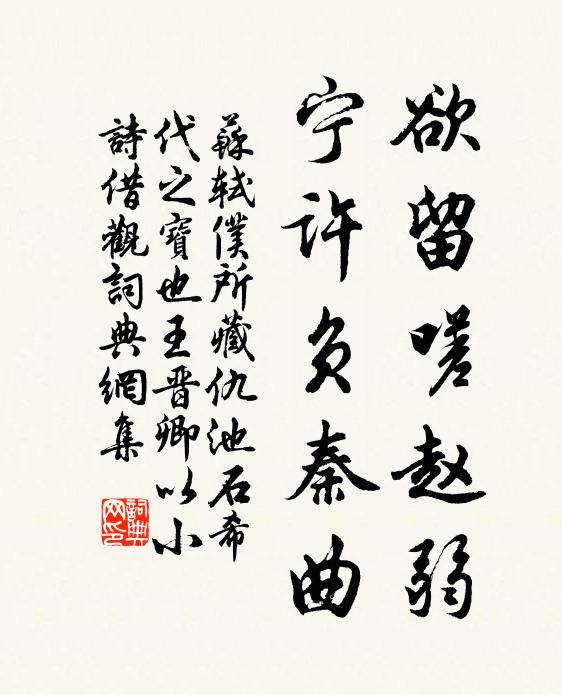 欲留嗟赵弱
宁许负秦曲
蘇軾僕所藏仇池石希
代之寶也王晋卿以小
詩借觀詞典網集
詞典
网印